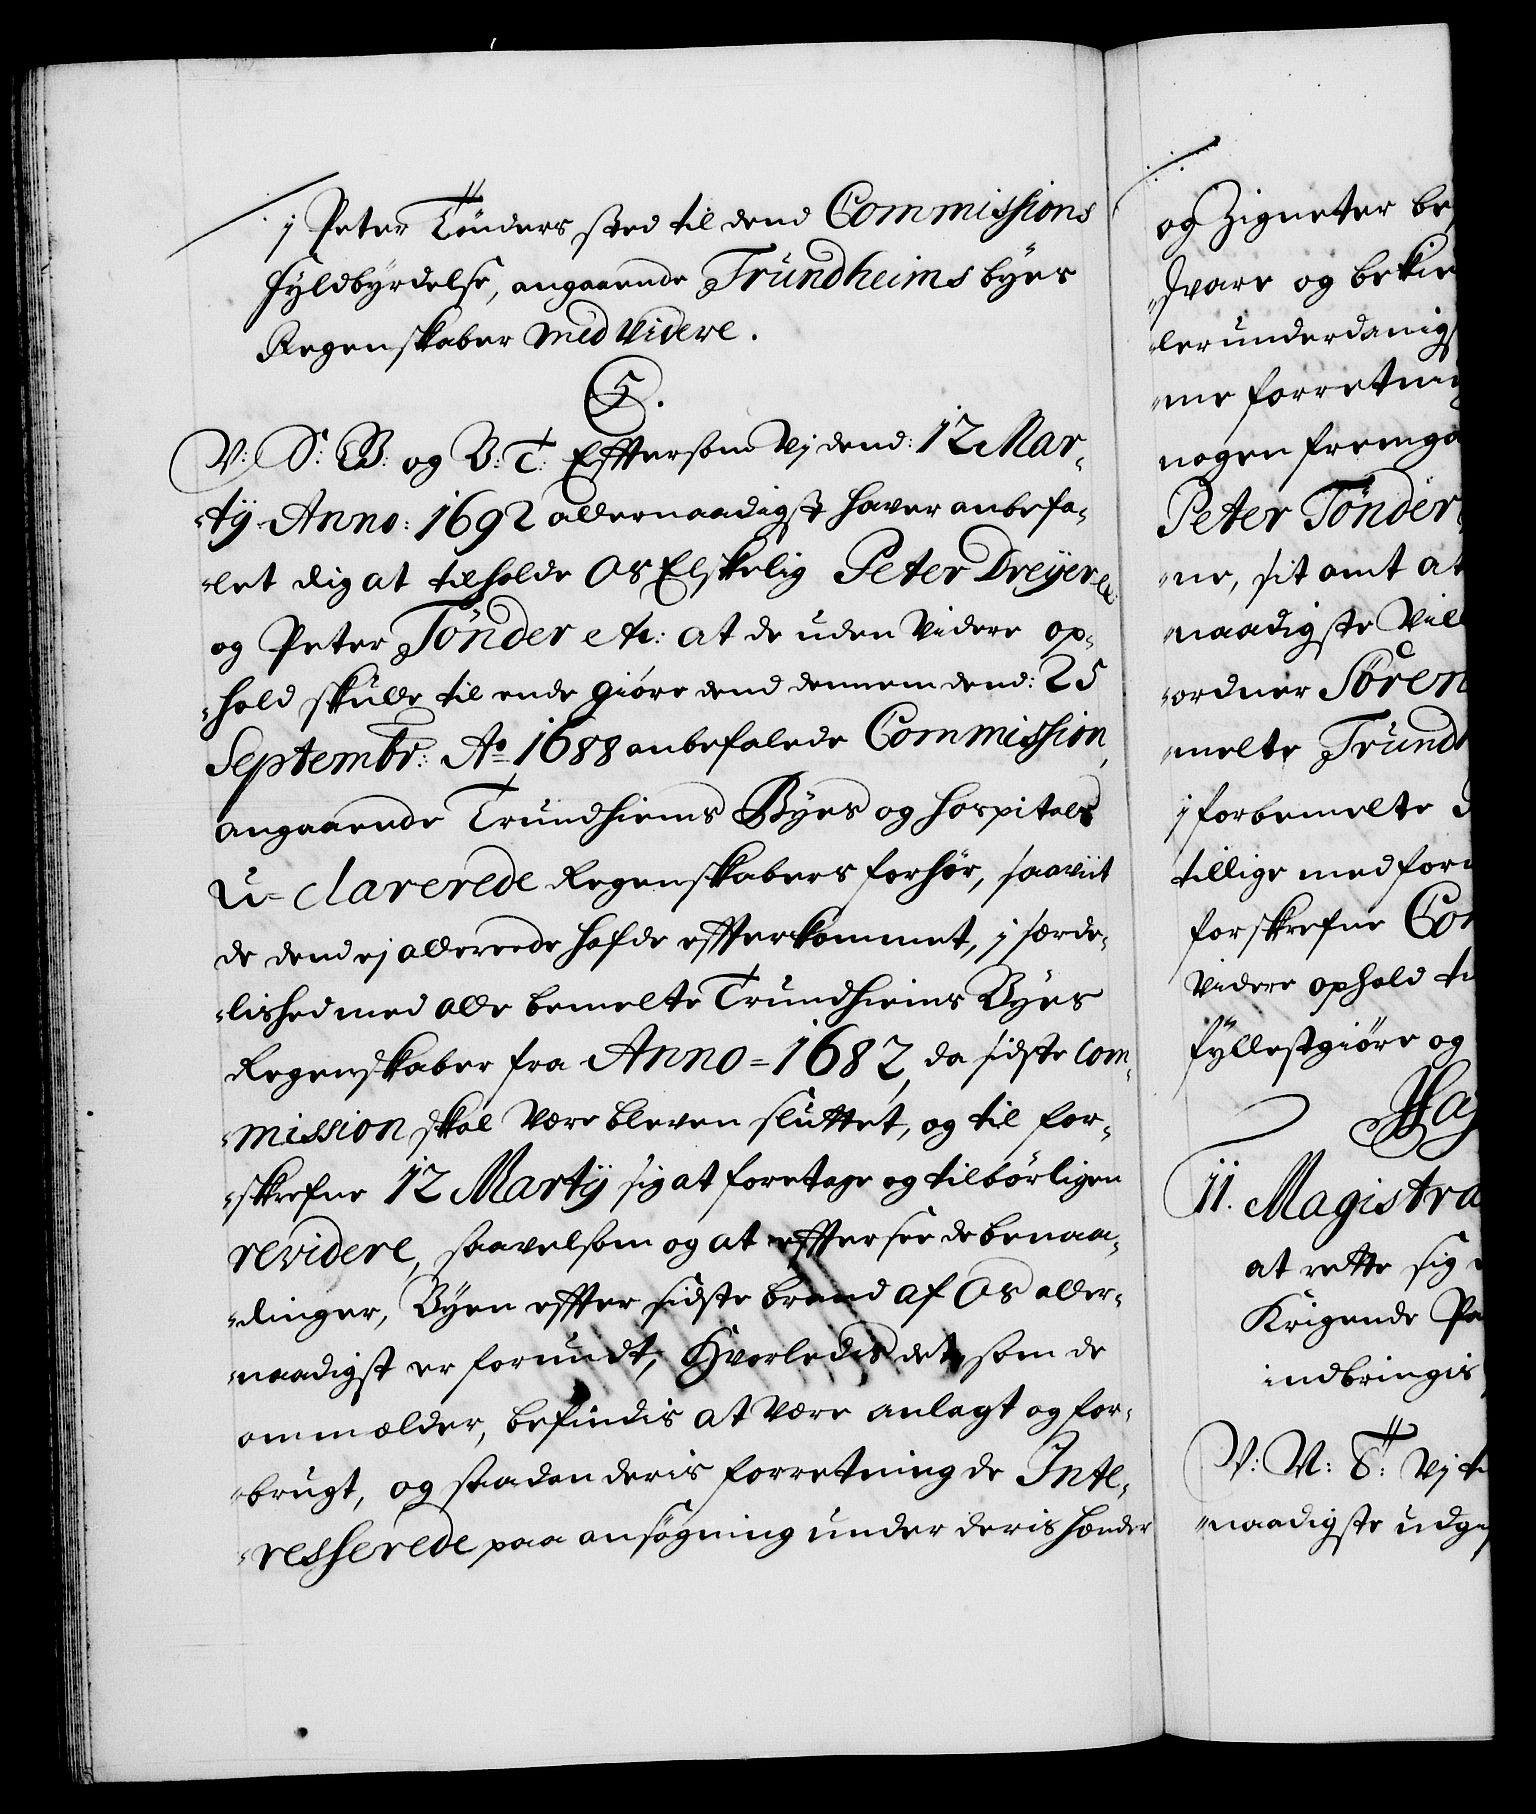 j Peter Tönders sted til dend Commissions
fyldbyrdelse, angaaende Trundheims byes
Regenskaber med videre.
5.
V: S: B: og B: T: Eftersom Vj dend: 12 Mar-
-tij Anno: 1692 allernaadigst hafver anbefa-
-let dig at tilholde Os Elskelig Peter Dreyer
og Peter Tönder etc: at de uden Videre op-
-hold skulle til ende giöre dend dennem dend: 25
Septembr: Ao 1688 anbefalede Commission,
angaaende Trundhiems Byes og Hospitals
U-clarerede Regenskabers forhör, saaviit
de dend ej allereede hafde efterkommet, j særde-
-lished med alle bemelte Trundhiems Byes
Regenskaber fra Anno = 1682, da sidste Com-
-mission skal Være bleven sluttet, og til for-
-skrefne 12 Martij sig at foretage og tilbörligen
revidere, saavelsom og at efftersee de benaa-
-dinger, Byen effter sidste brand af Os aller-
-naadigst er forundt, Hvorledis det, som de
ommælder, befindis at Være anlagt og for-
-brugt, og saadan deris forretning de Inte-
-resserede paa ansögning under deris hænder
og Zigneter be
-svare og bekie
-lerunderdanigs
-me forretni
nogen fremga
Peter Tönder
-ne, sit amt at
-naadigste Vill
-ordner Sören
melte Trundh
j forbemelte
tillige med for
forskrefne Com
Videre ophold ti
fyllestgiöre og
Haf
11. Magistra
at rette sig
Krigende Pa
indbringis
V: M: S: Vj t
-naadigste udg